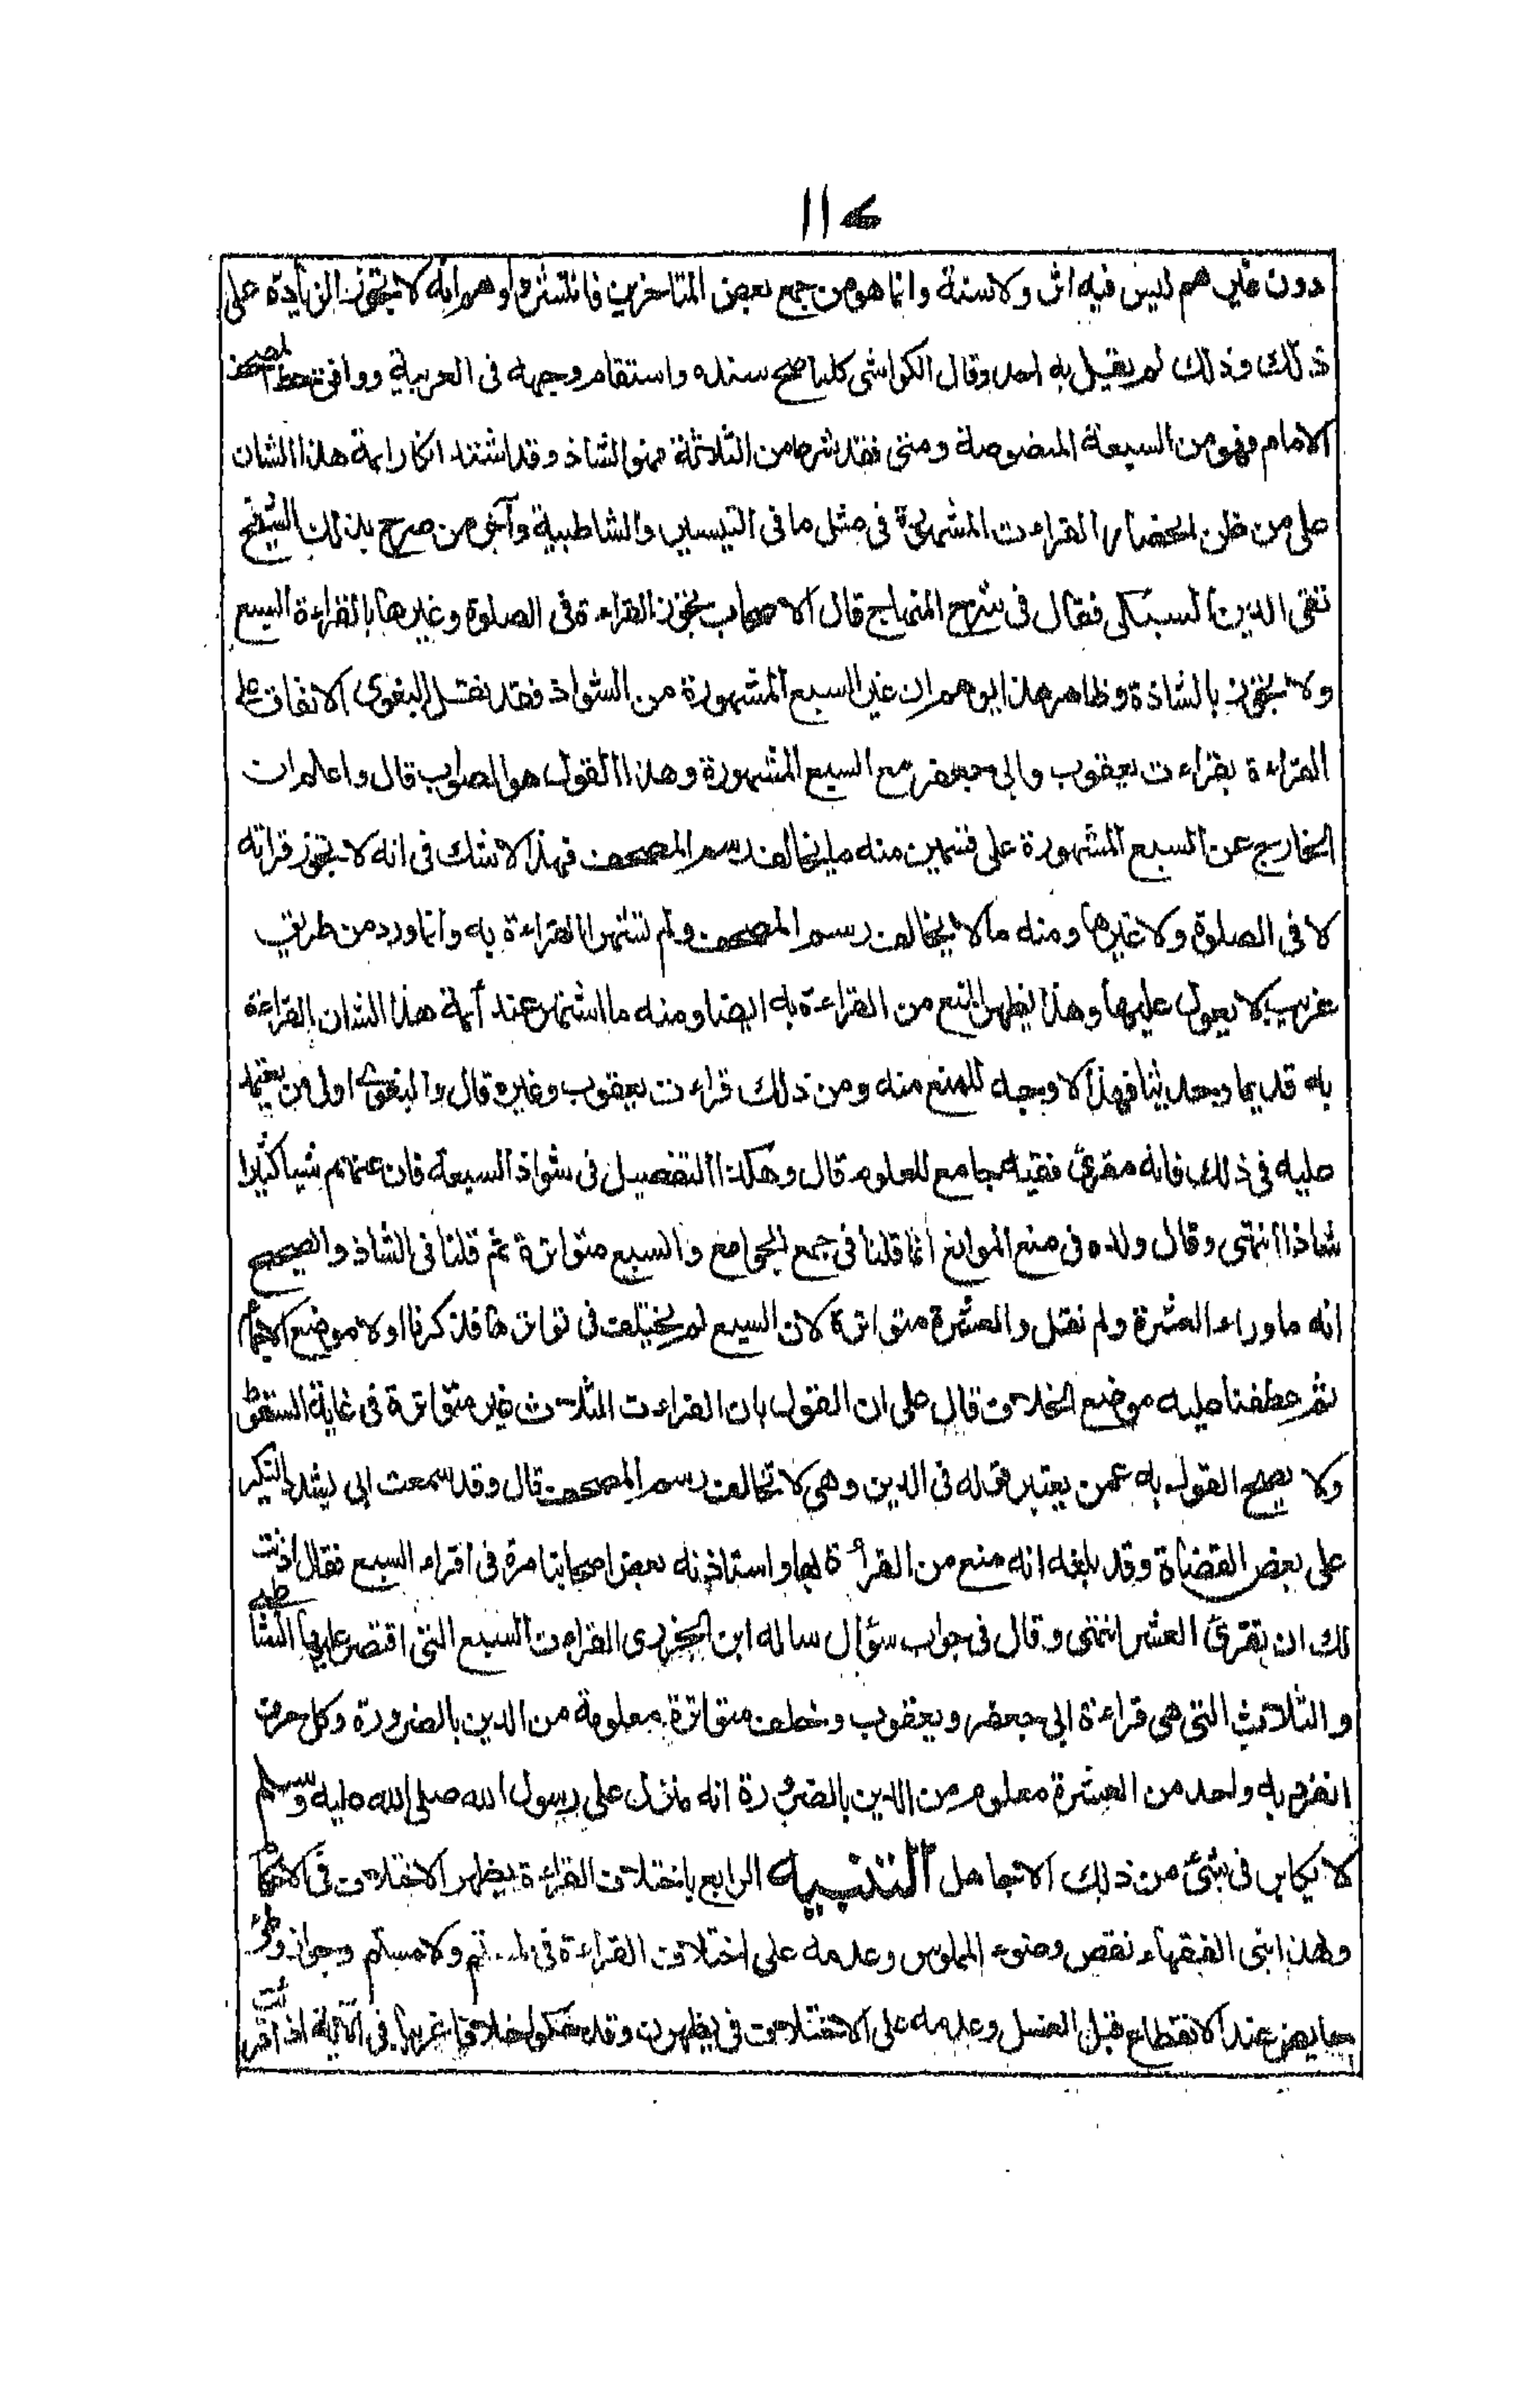 ١١ے
دون غيرهم ليس فيه اثر ولا سنة وانما هو من جمع بعض المتاخرين فانتشر واوهم انه لا تجوز الزيادة على
ذلك وذلك لم يقل به احد وقال الكواشي كلما صح سنده واستقام وجهه فى العربية ووافق خط المصحف
الامام فهو من السبعة المنصوصة ومتى فقد شرط من الثلاثة فهو الشاذ وقد اشتد انكار ايمة هذا الشان
على من ظن انحصار القراءت المشهورة فى مثل ما فى التيسير والشاطبية وآخر من صرح بذلك الشيخ
تقى الدين السبكى فقال فى شرح المنهاج قال الاصحاب تجوز القراءة فى الصلوة وغيرها بالقراءة السبع
ولا تجوز بالشاذة وظاهر هذا يوهم ان غير السبع المشهورة من الشواذ فقد نقل البغوى الاتفاق على
القراءة بقراءت يعقوب وابى جعفر مع السبع المشهورة وهذا القول هو الصواب قال واعلم ان
الخارج عن السبع المشهورة على قسمين منه ما يخالف رسم المصحف فهذا لا شك فى انه لا تجوز قراته
لا فى الصلوة ولا غيرها ومنه ما لا يخالف رسم المصحف ولم تشتهر القراءة به وانما ورد من طريق
غريب لا يعول عليها وهذا يظهر المنع من القراءة به ايضا ومنه ما اشتهر عند أيمة هذا الشان القراءة
به قديما وحديثا فهذا لا وجه للمنع منه ومن ذلك قراءت يعقوب وغيره قال والبغوى اولى من يعتمد
عليه فى ذلك فانه مقرئ فقيه جامع للعلوم قال وهكذا التفصيل فى شواذ السبعة فان عنهم شيا كثيرا
شاذا انتهى وقال ولده فى منع الموانع انما قلنا فى جمع الجوامع والسبع متواترة ثم قلنا فى الشاذ والصحيح
انه ما وراء العشرة ولم نقل والعشرة متواترة لان السبع لم يختلف فى تواترها فذكرنا اولا موضع الاجماع
ثم عطفنا عليه موضع الخلاف قال على ان القول بان القراءت الثلاث غير متواترة فى غاية السقوط
ولا يصح القول به عمن يعتبر قوله فى الدين وهى لا تخالف رسم المصحف قال وقد سمعت ابى يشدد النكير
على بعض القضاة وقد بلغه انه منع من القرأة بها واستاذنه بعض اصحابنا مرة فى اقراء السبع فقال اذنت
لك ان تقرئ العشر انتهى وقال فى جواب سؤال ساله ابن الجزرى القراءت السبع التى اقتصر عليها الشاطبى
والثلاث التى هى قراءة ابى جعفر ويعقوب وخلف متواترة معلومة من الدين بالضرورة وكل حرف
انفرد به واحد من العشرة معلوم من الدين بالضرورة انه منزل على رسول الله صلى الله عليه وسلم
لا يكابر فى شئ من ذلك الا جاهل التنبيه الرابع باختلاف القراءة يظهر الاختلاف فى الاحكام
ولهذا بنى الفقهاء نقض وضوء الملموس وعدمه على اختلاف القراءة فى لمستم ولامستم وجواز وطئ
حايض عند الانقطاع قبل الغسل وعدمه على الاختلاف فى يطهرن وقد حكوا خلافا غريبا فى الآية اذا قرئت